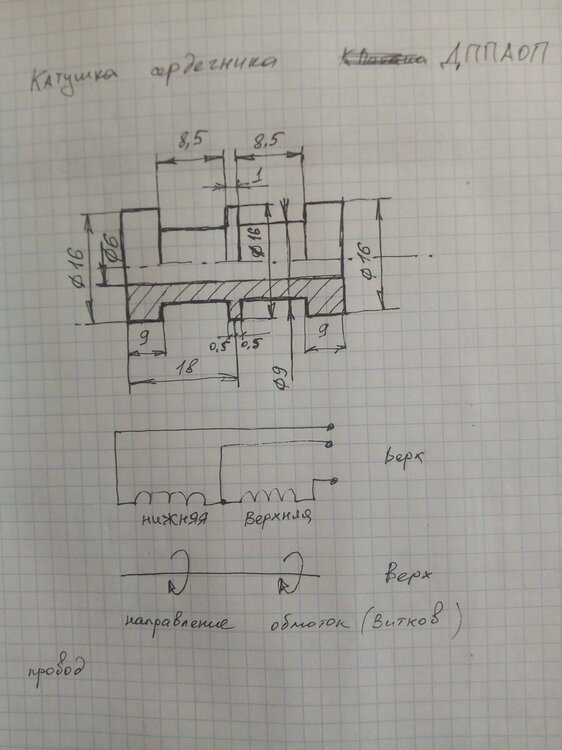 Катушка сердечника ДППАОП
8,5 8,5
1
Ø16 Ø6 Ø16 Ø16
9 0,5 0,5 9
18 Ø9
Верх
нижняя Верхняя
Верх
направление обмоток (Витков)
провод